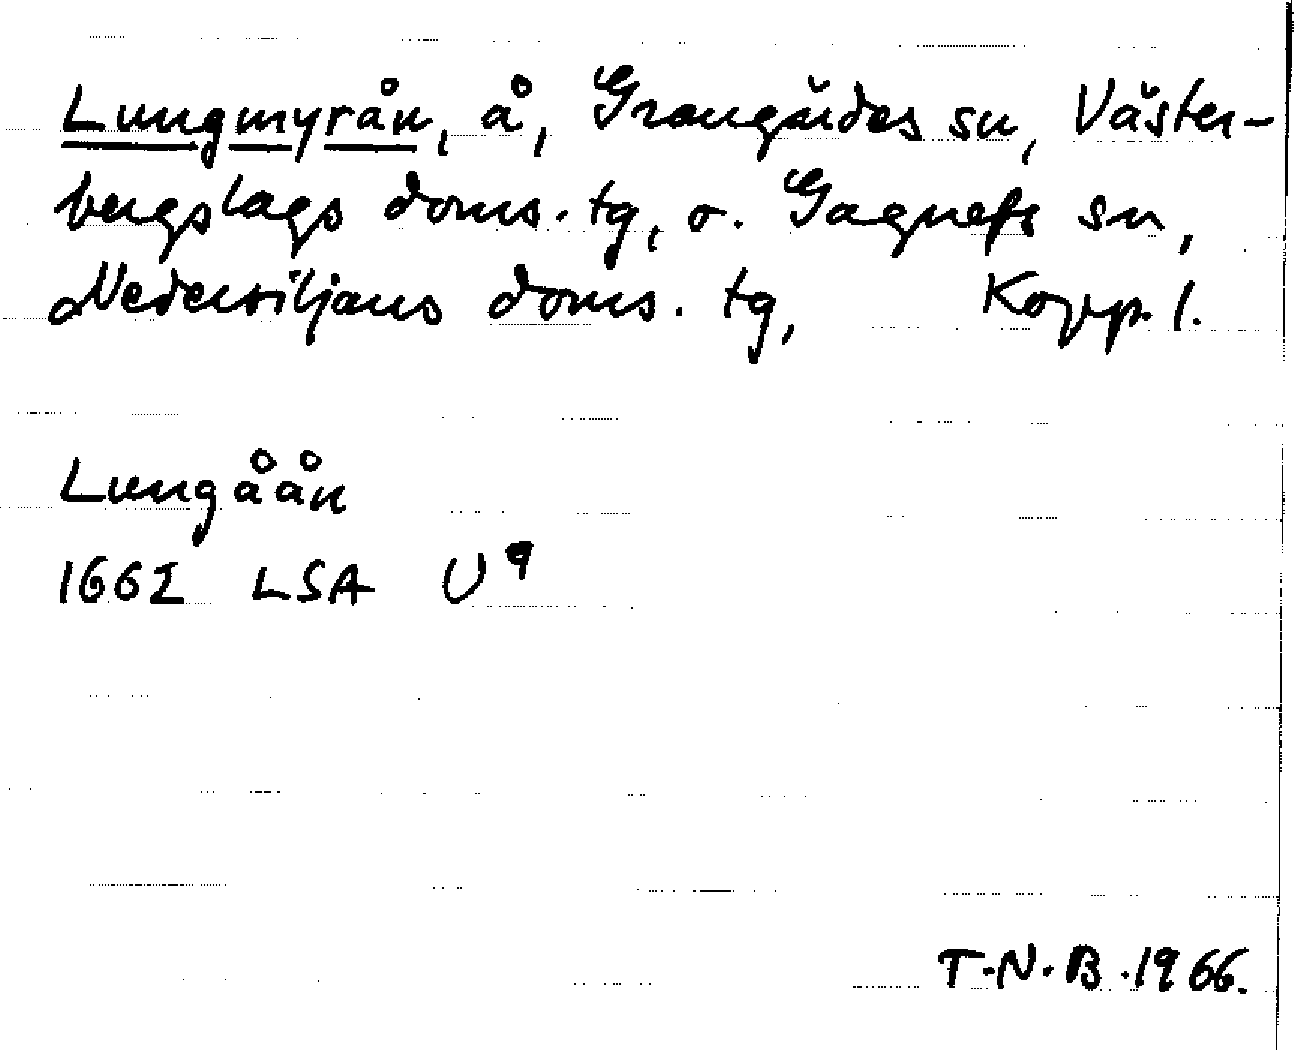 Lungmyrån, å, Grangärdes sn, Väster-
bergslags doms. tg, o. Gagnefs sn,
Nedersiljans doms. tg, Kopp. l.
Lungåån
1662 LSA U9
T.N.B. 1966.